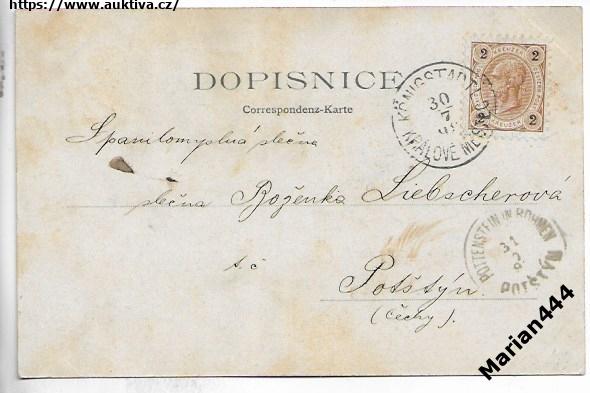 https://www.auktiva.cz/
DOPISNICE
Correspondenz-Karte
2 2
KREUZER
2 2
KÖNIGSTADTL
30
7
98
KRÁLOVÉ MĚSTEC
Spanilomyslná slečna
slečna Boženka Liebscherová
t. č
Potštýn.
(Čechy).
POTTENSTEIN IN BÖHMEN
31
7
POTŠTÝN
Marian444